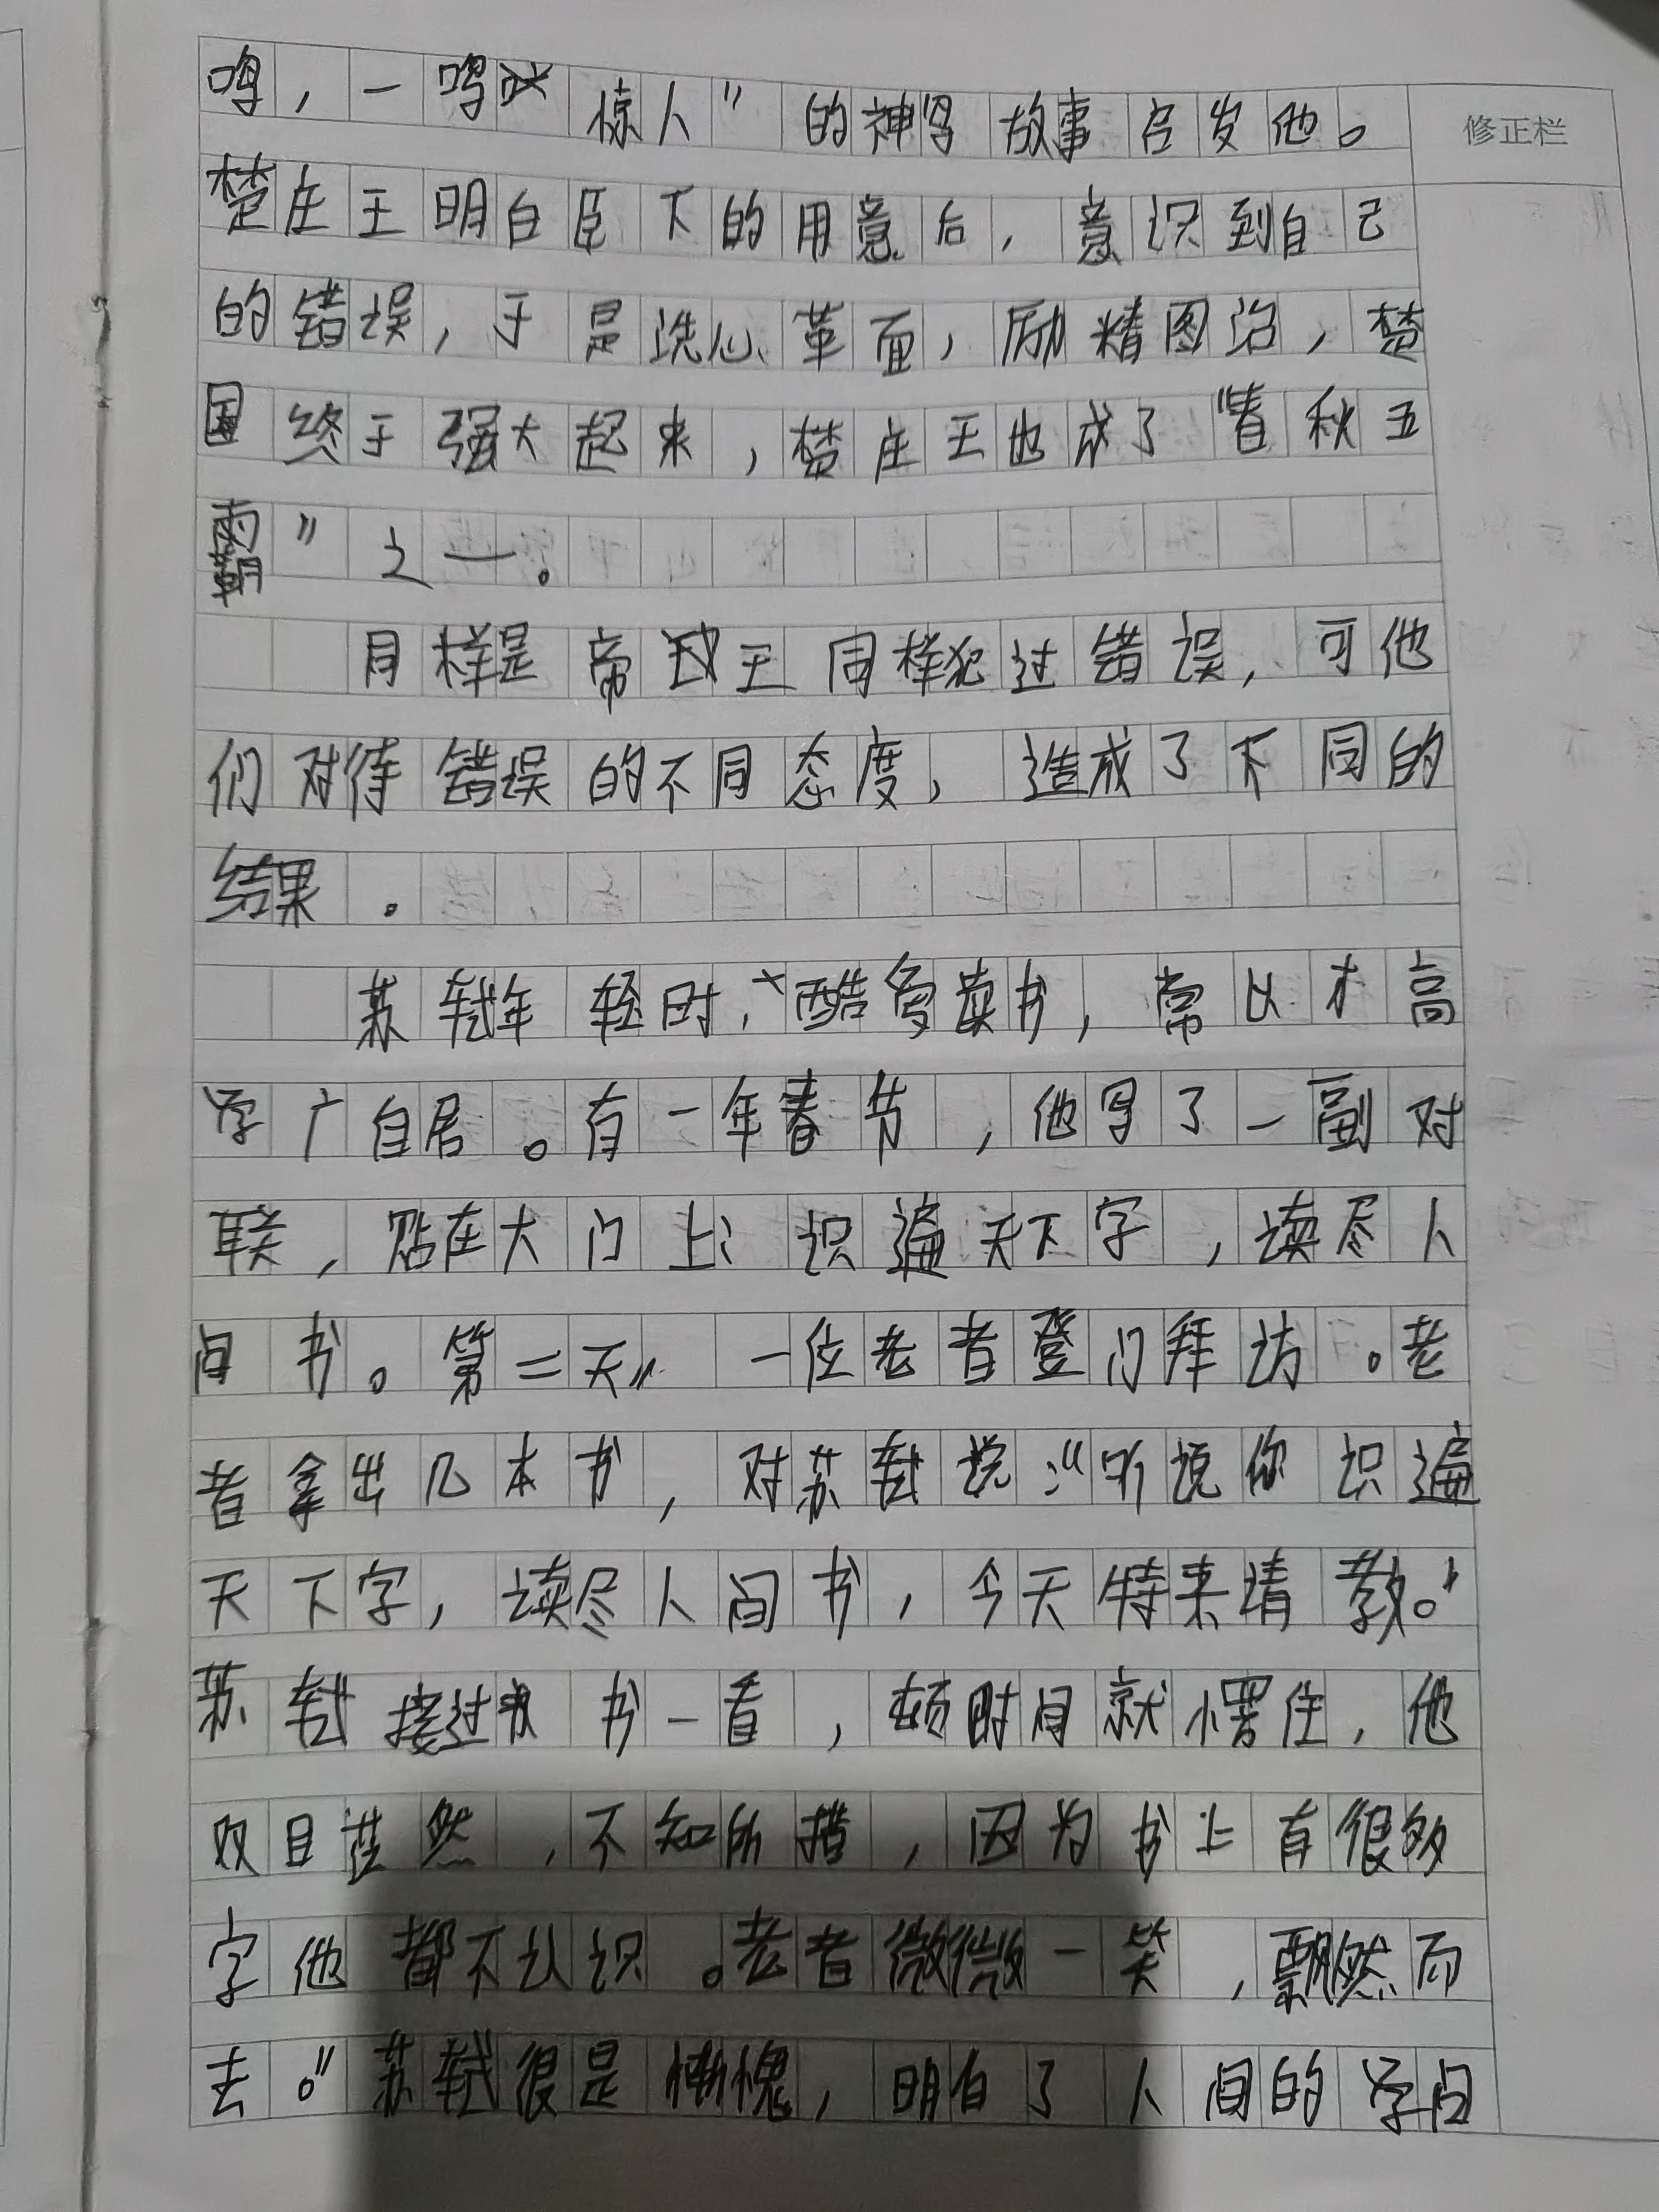 鸣，一鸣惊人”的神鸟故事启发他。
修正栏
楚庄王明白臣下的用意后，意识到自己
的错误，于是洗心革面，励精图治，楚
国终于强大起来，楚庄王也成了“春秋五
霸”之一。
同样是帝王同样犯过错误，可他
们对待错误的不同态度，造成了不同的
结果。
苏轼年轻时，酷爱读书，常以才高
学广自居。有一年春节，他写了一副对
联，贴在大门上：识遍天下字，读尽人
间书。第二天，一位老者登门拜访。老
者拿出几本书，对苏轼说：“听说你识遍
天下字，读尽人间书，今天特来请教。”
苏轼接过书一看，顿时间就愣住，他
双目茫然，不知所措，因为书上有很多
字他都不认识。老者微微一笑，飘然而
去。”苏轼很是惭愧，明白了人间的学问